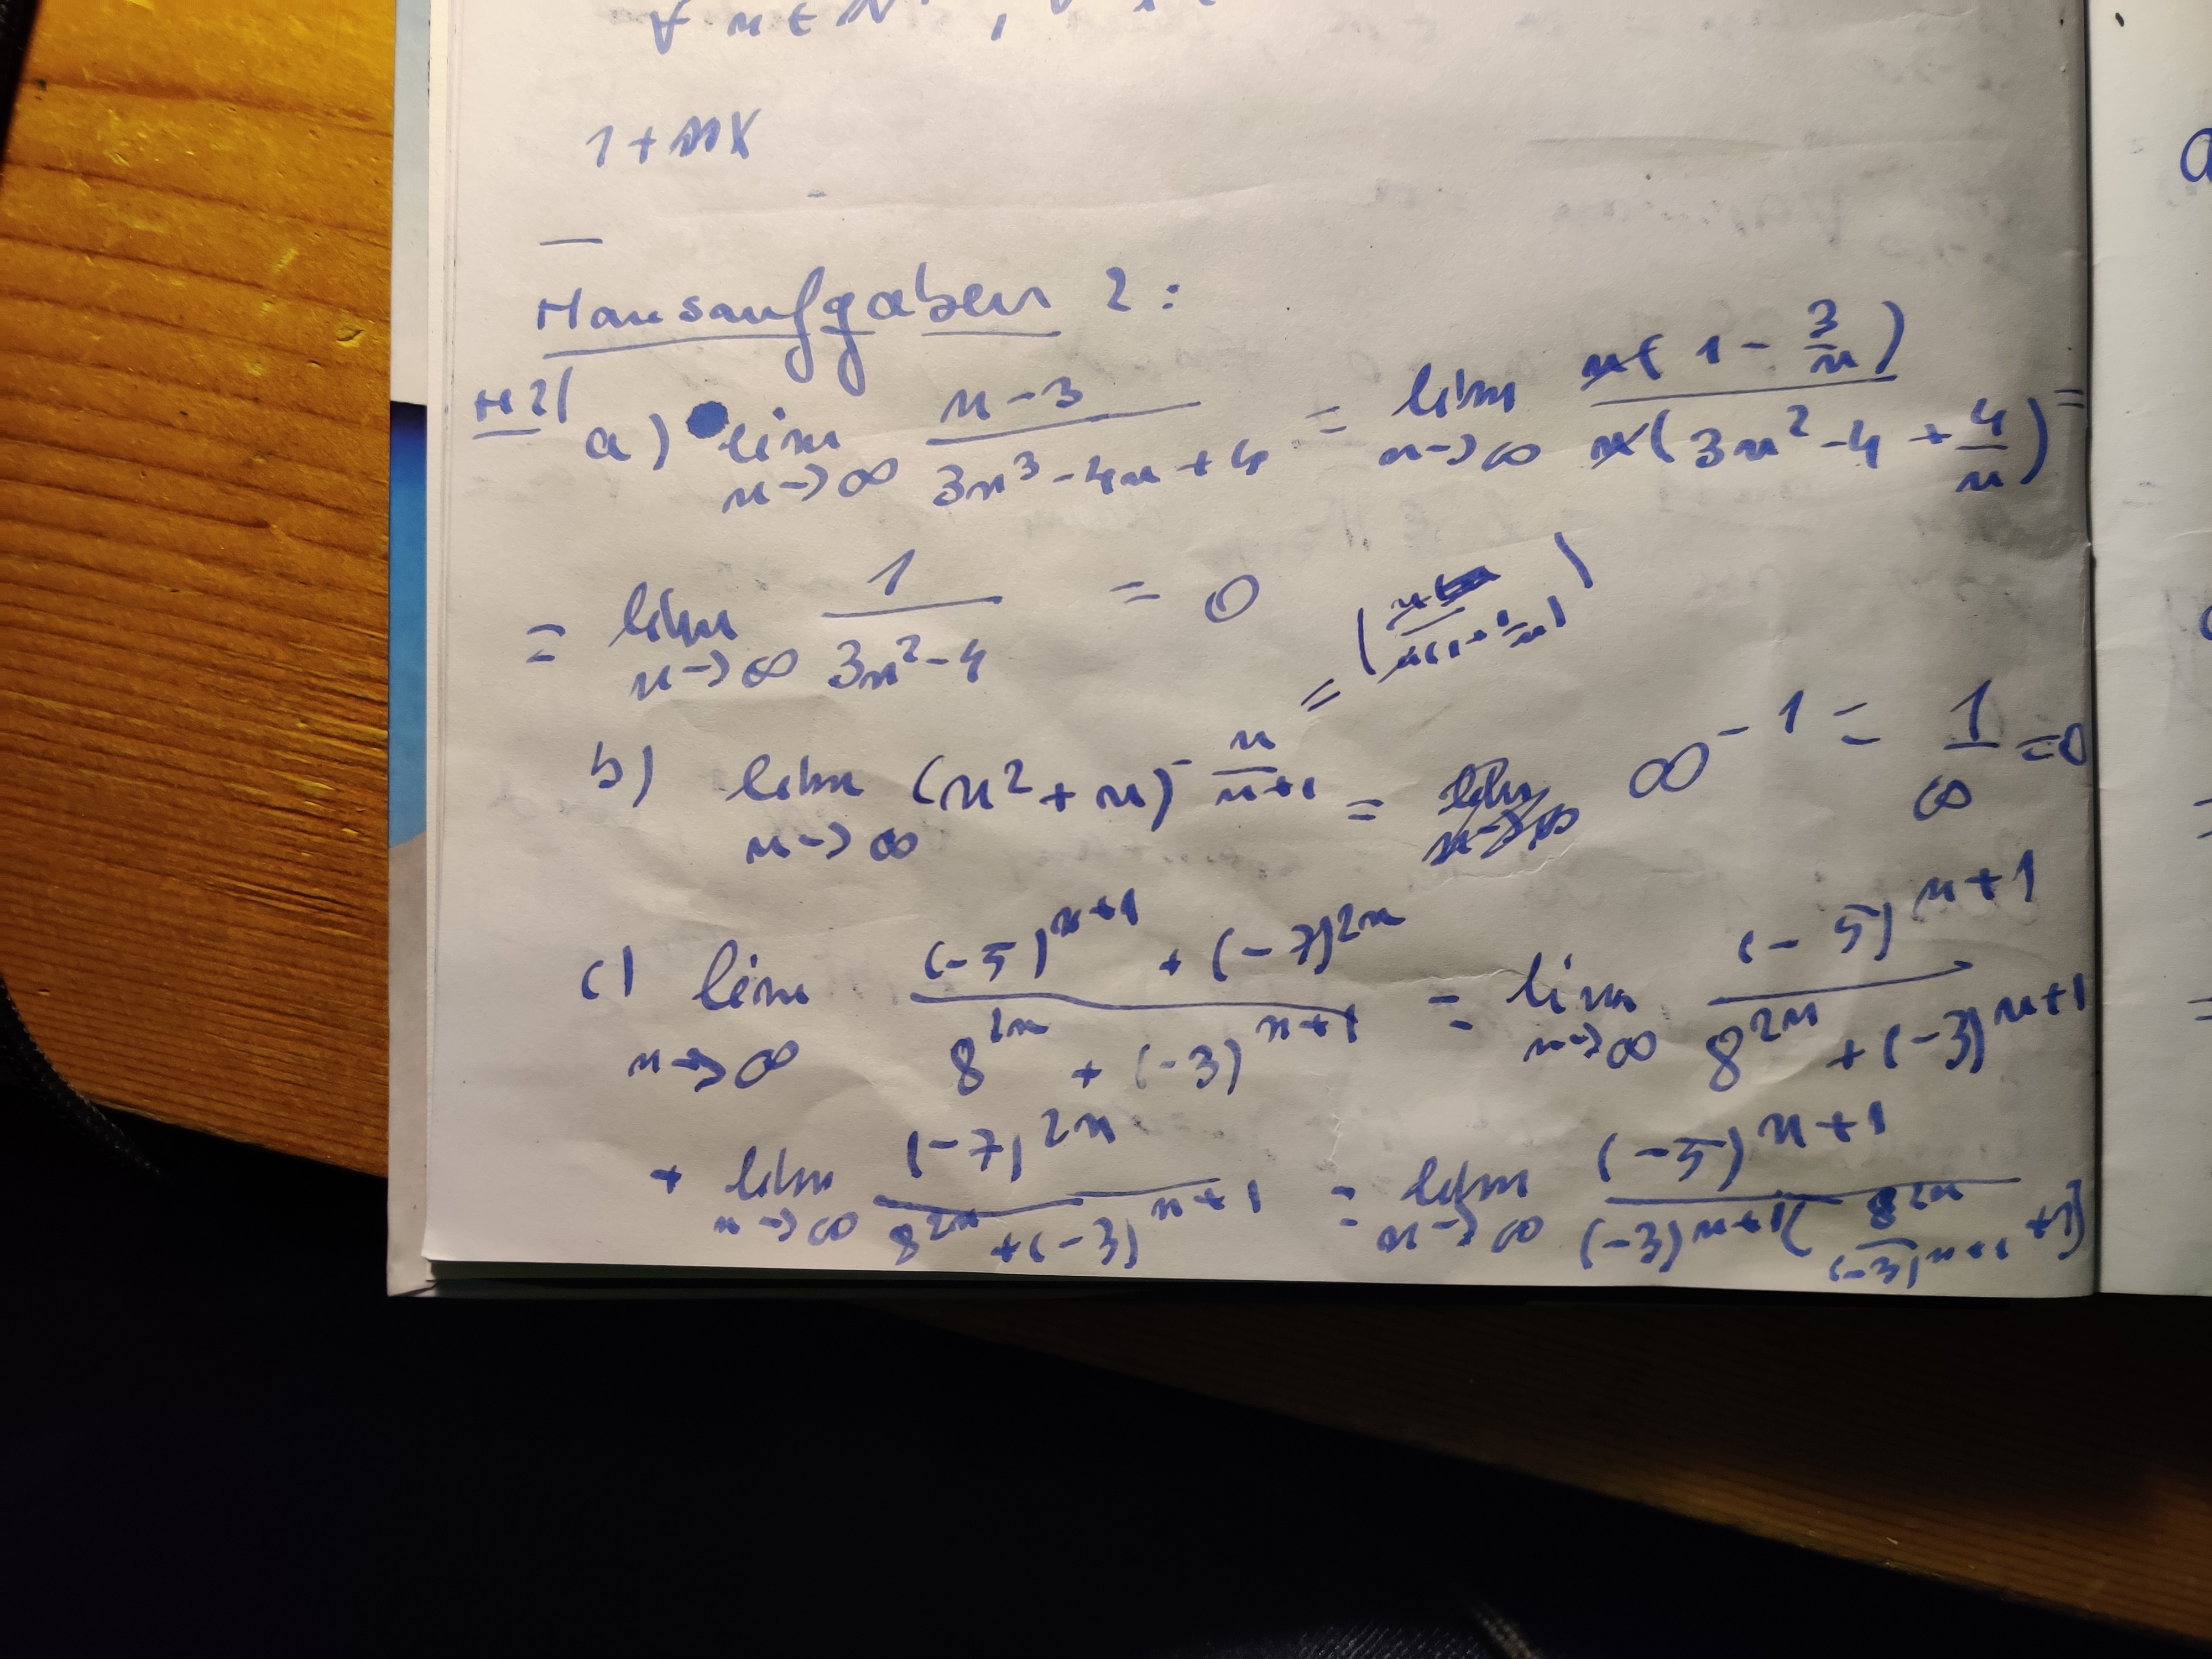 1 + nx
Hausaufgaben 2:
H2| a) lim n→∞ (n-3)/(3n³-4n+4) = lim n→∞ n(1-3/n)/n(3n²-4+4/n) =
= lim n→∞ 1/(3n²-4) = 0
b) lim n→∞ (n²+n)^(-n/(n+1)) = ∞^-1 = 1/∞ = 0
c) lim n→∞ ((-5)^(n+1) + (-7)^(2n))/(8^(2n) + (-3)^(n+1)) = lim n→∞ (-5)^(n+1)/(8^(2n) + (-3)^(n+1))
+ lim n→∞ (-7)^(2n)/(8^(2n) + (-3)^(n+1)) = lim n→∞ (-5)^(n+1)/((-3)^(n+1)(8^(2n)/(-3)^(n+1) + 1)